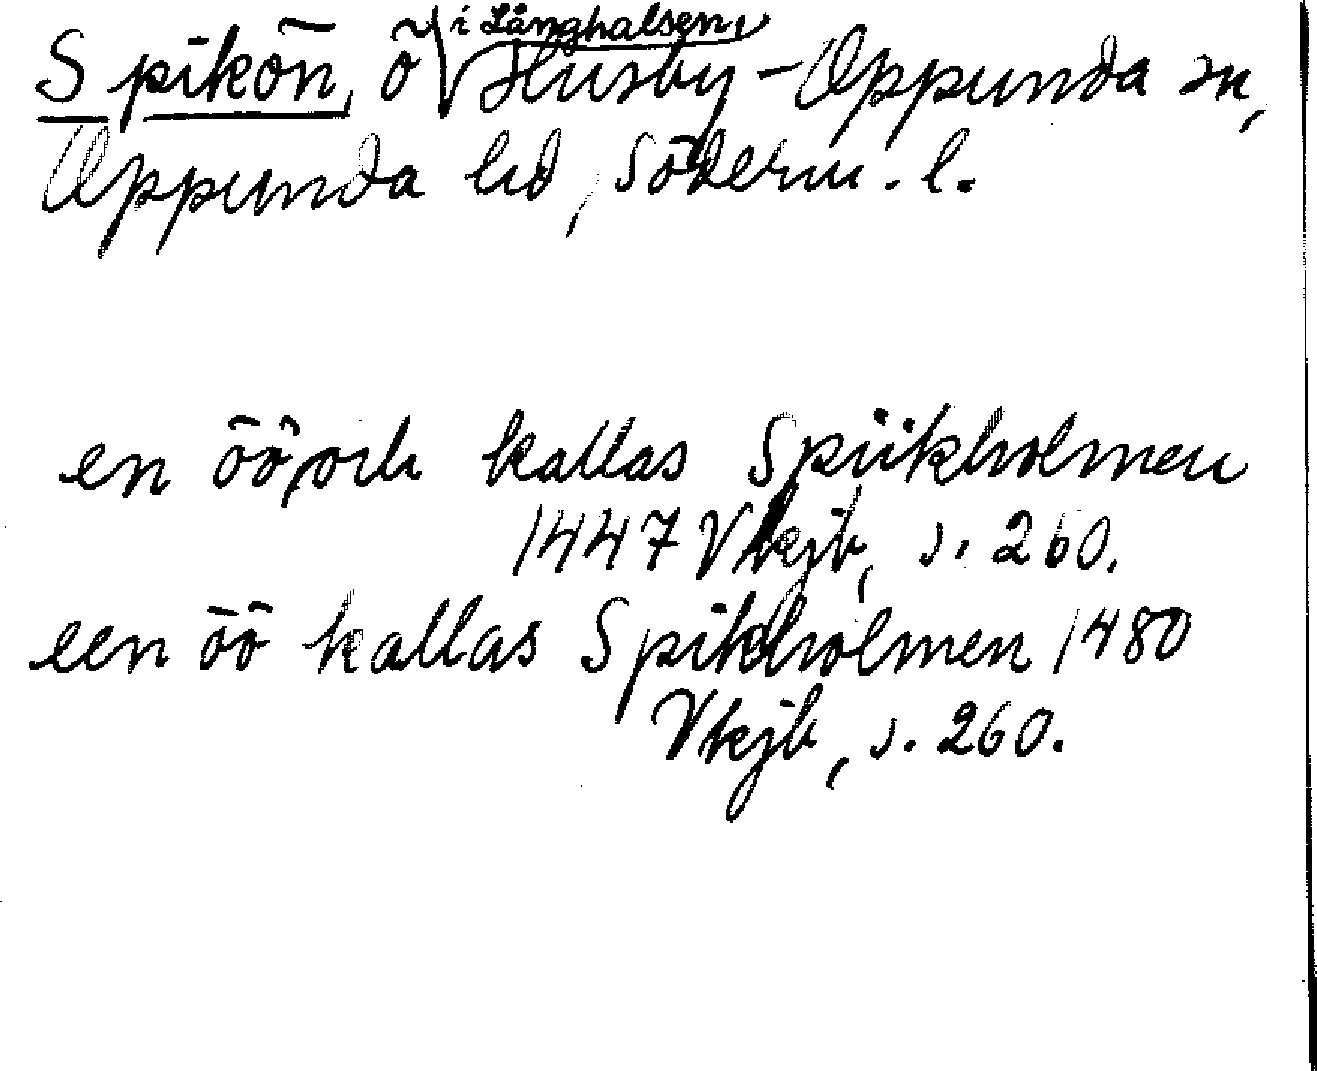 Spikön, ö i Långhalsen, Husby-Oppunda sn,
Oppunda hd, Söderm. l.
en öö, och kallas Spiikholmen
1447 Vkjb, s. 260.
een öö kallas Spikholmen 1480
Vkjb, s. 260.